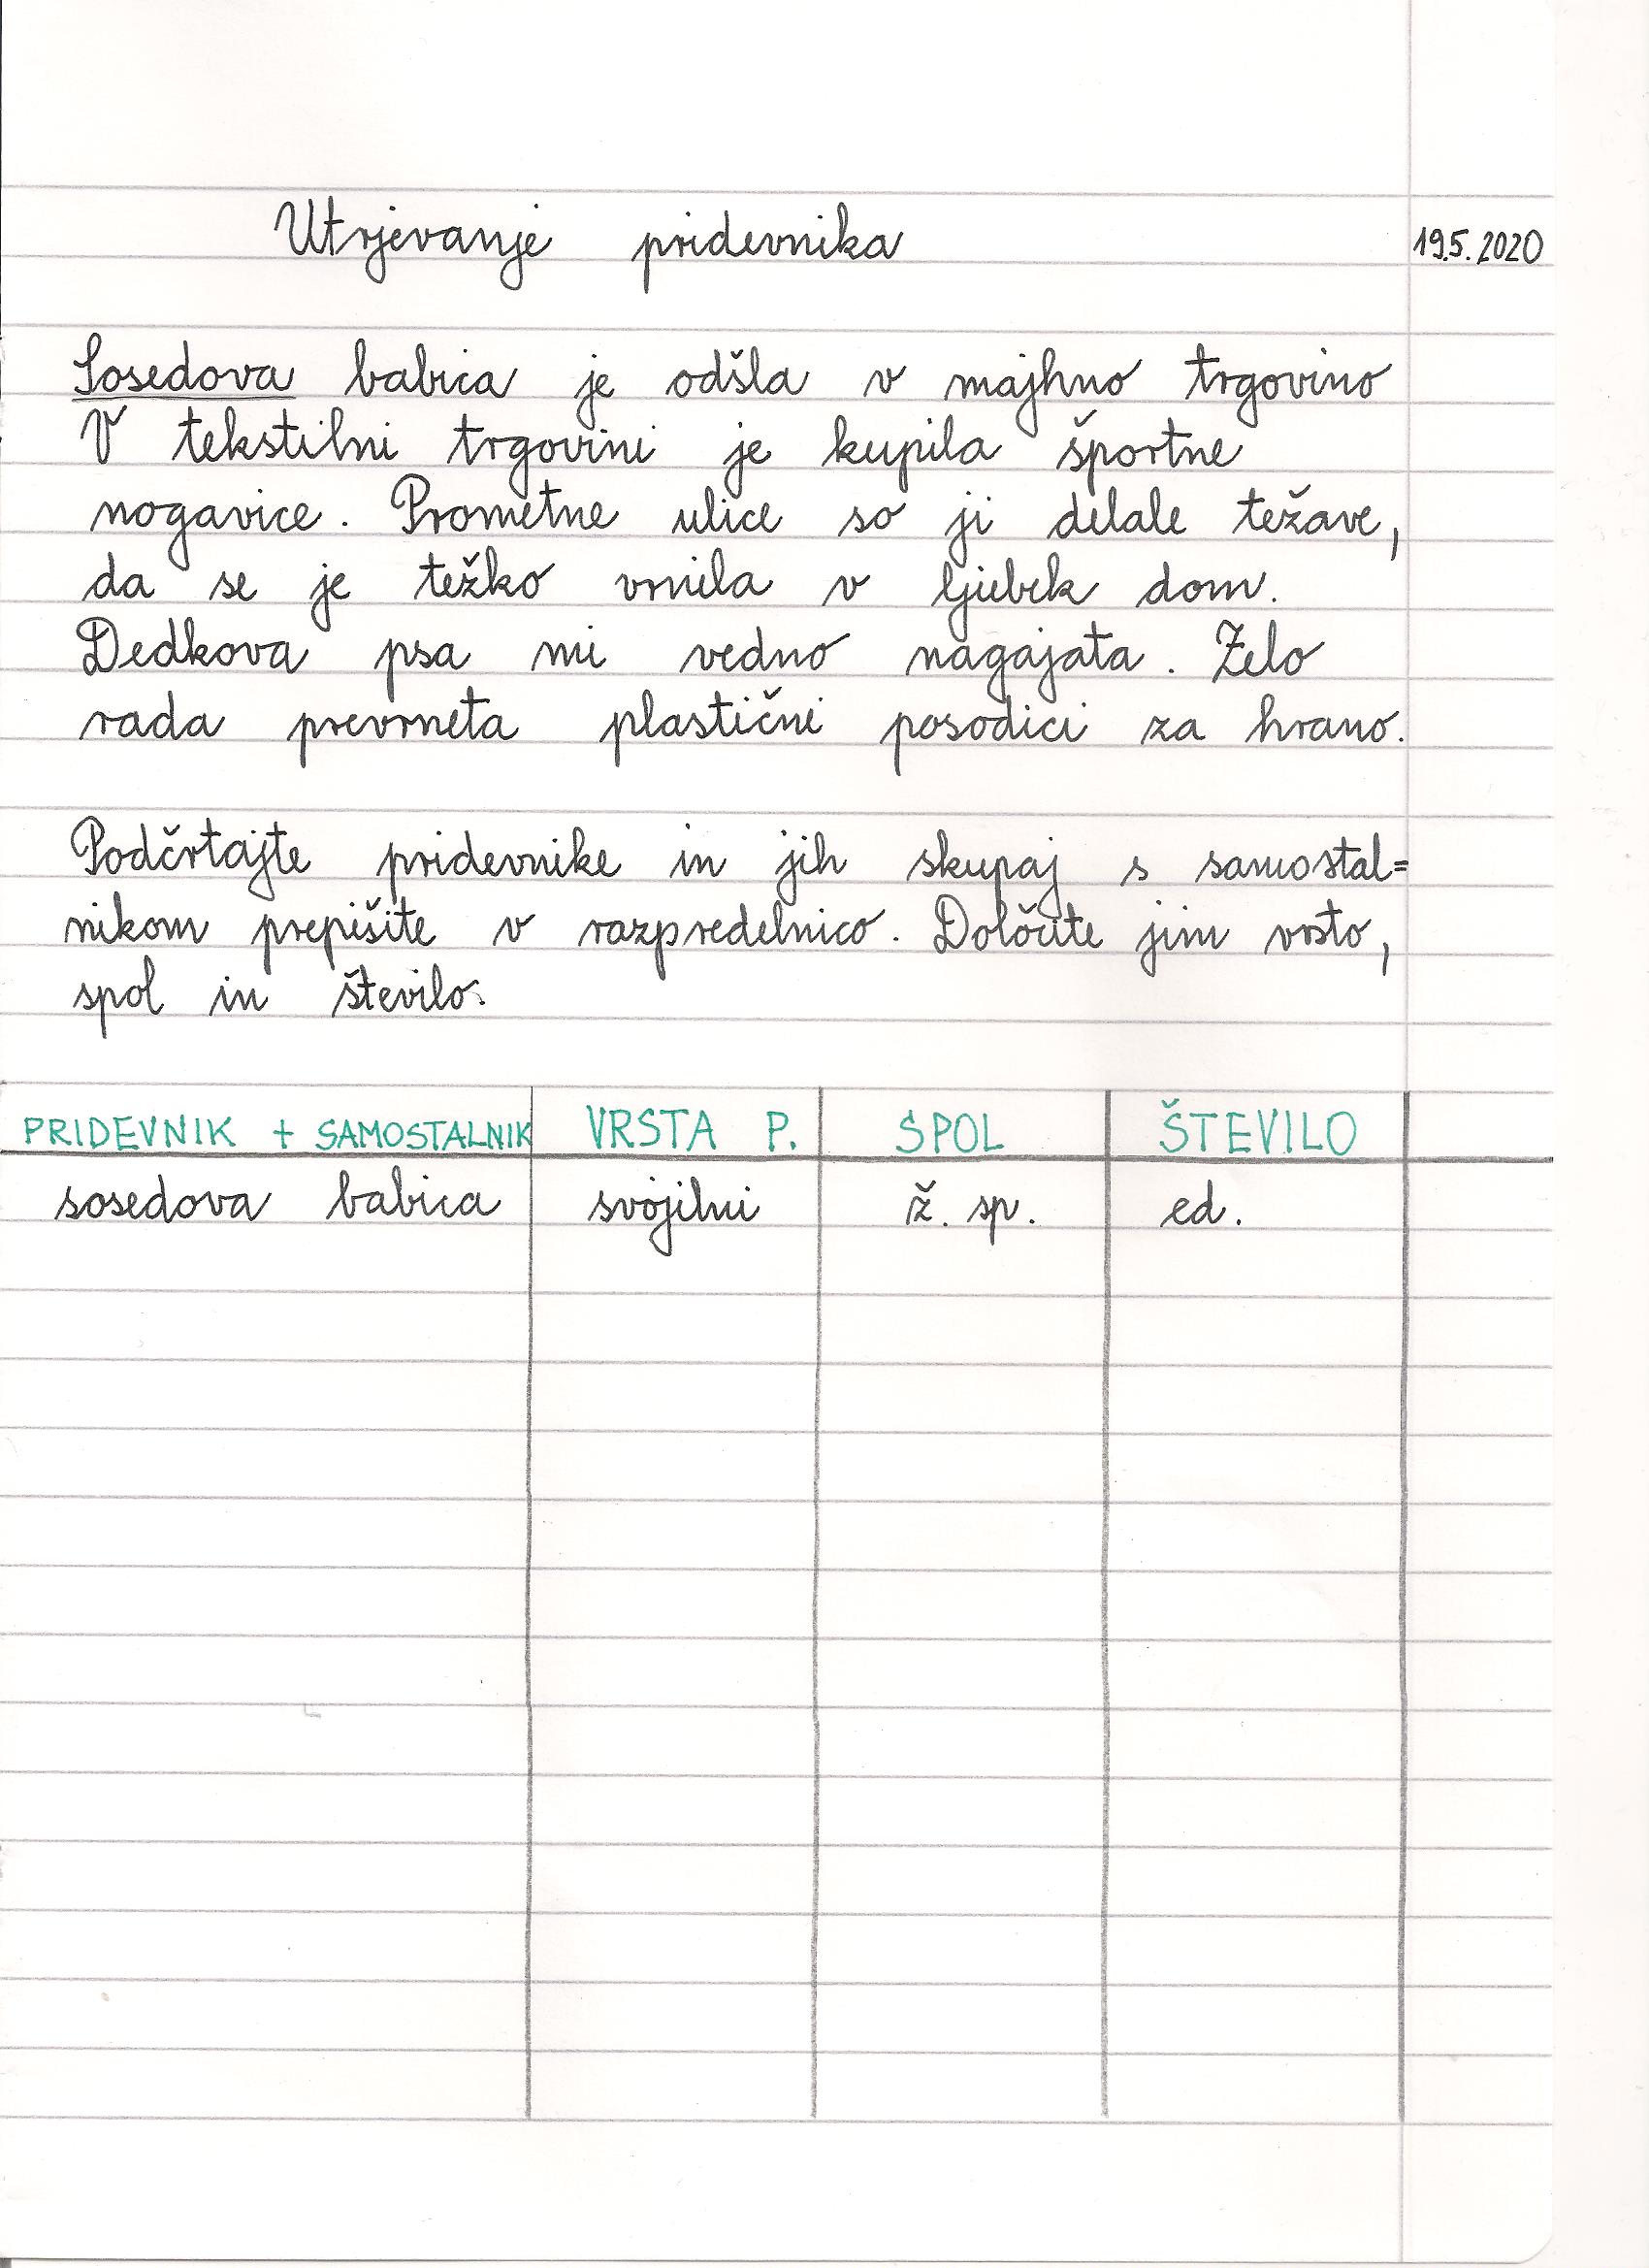 Utrjevanje pridevnika 19.5.2020
Sosedova babica je odšla v majhno trgovino
V tekstilni trgovini je kupila športne
nogavice. Prometne ulice so ji delale težave,
da se je težko vrnila v ljubek dom.
Dedkova psa mi vedno nagajata. Zelo
rada prevrneta plastični posodici za hrano.
Podčrtajte pridevnike in jih skupaj s samostal=
nikom prepišite v razpredelnico. Določite jim vrsto,
spol in število.
PRIDEVNIK + SAMOSTALNIK VRSTA P. SPOL ŠTEVILO
sosedova babica svojilni ž. sp. ed.